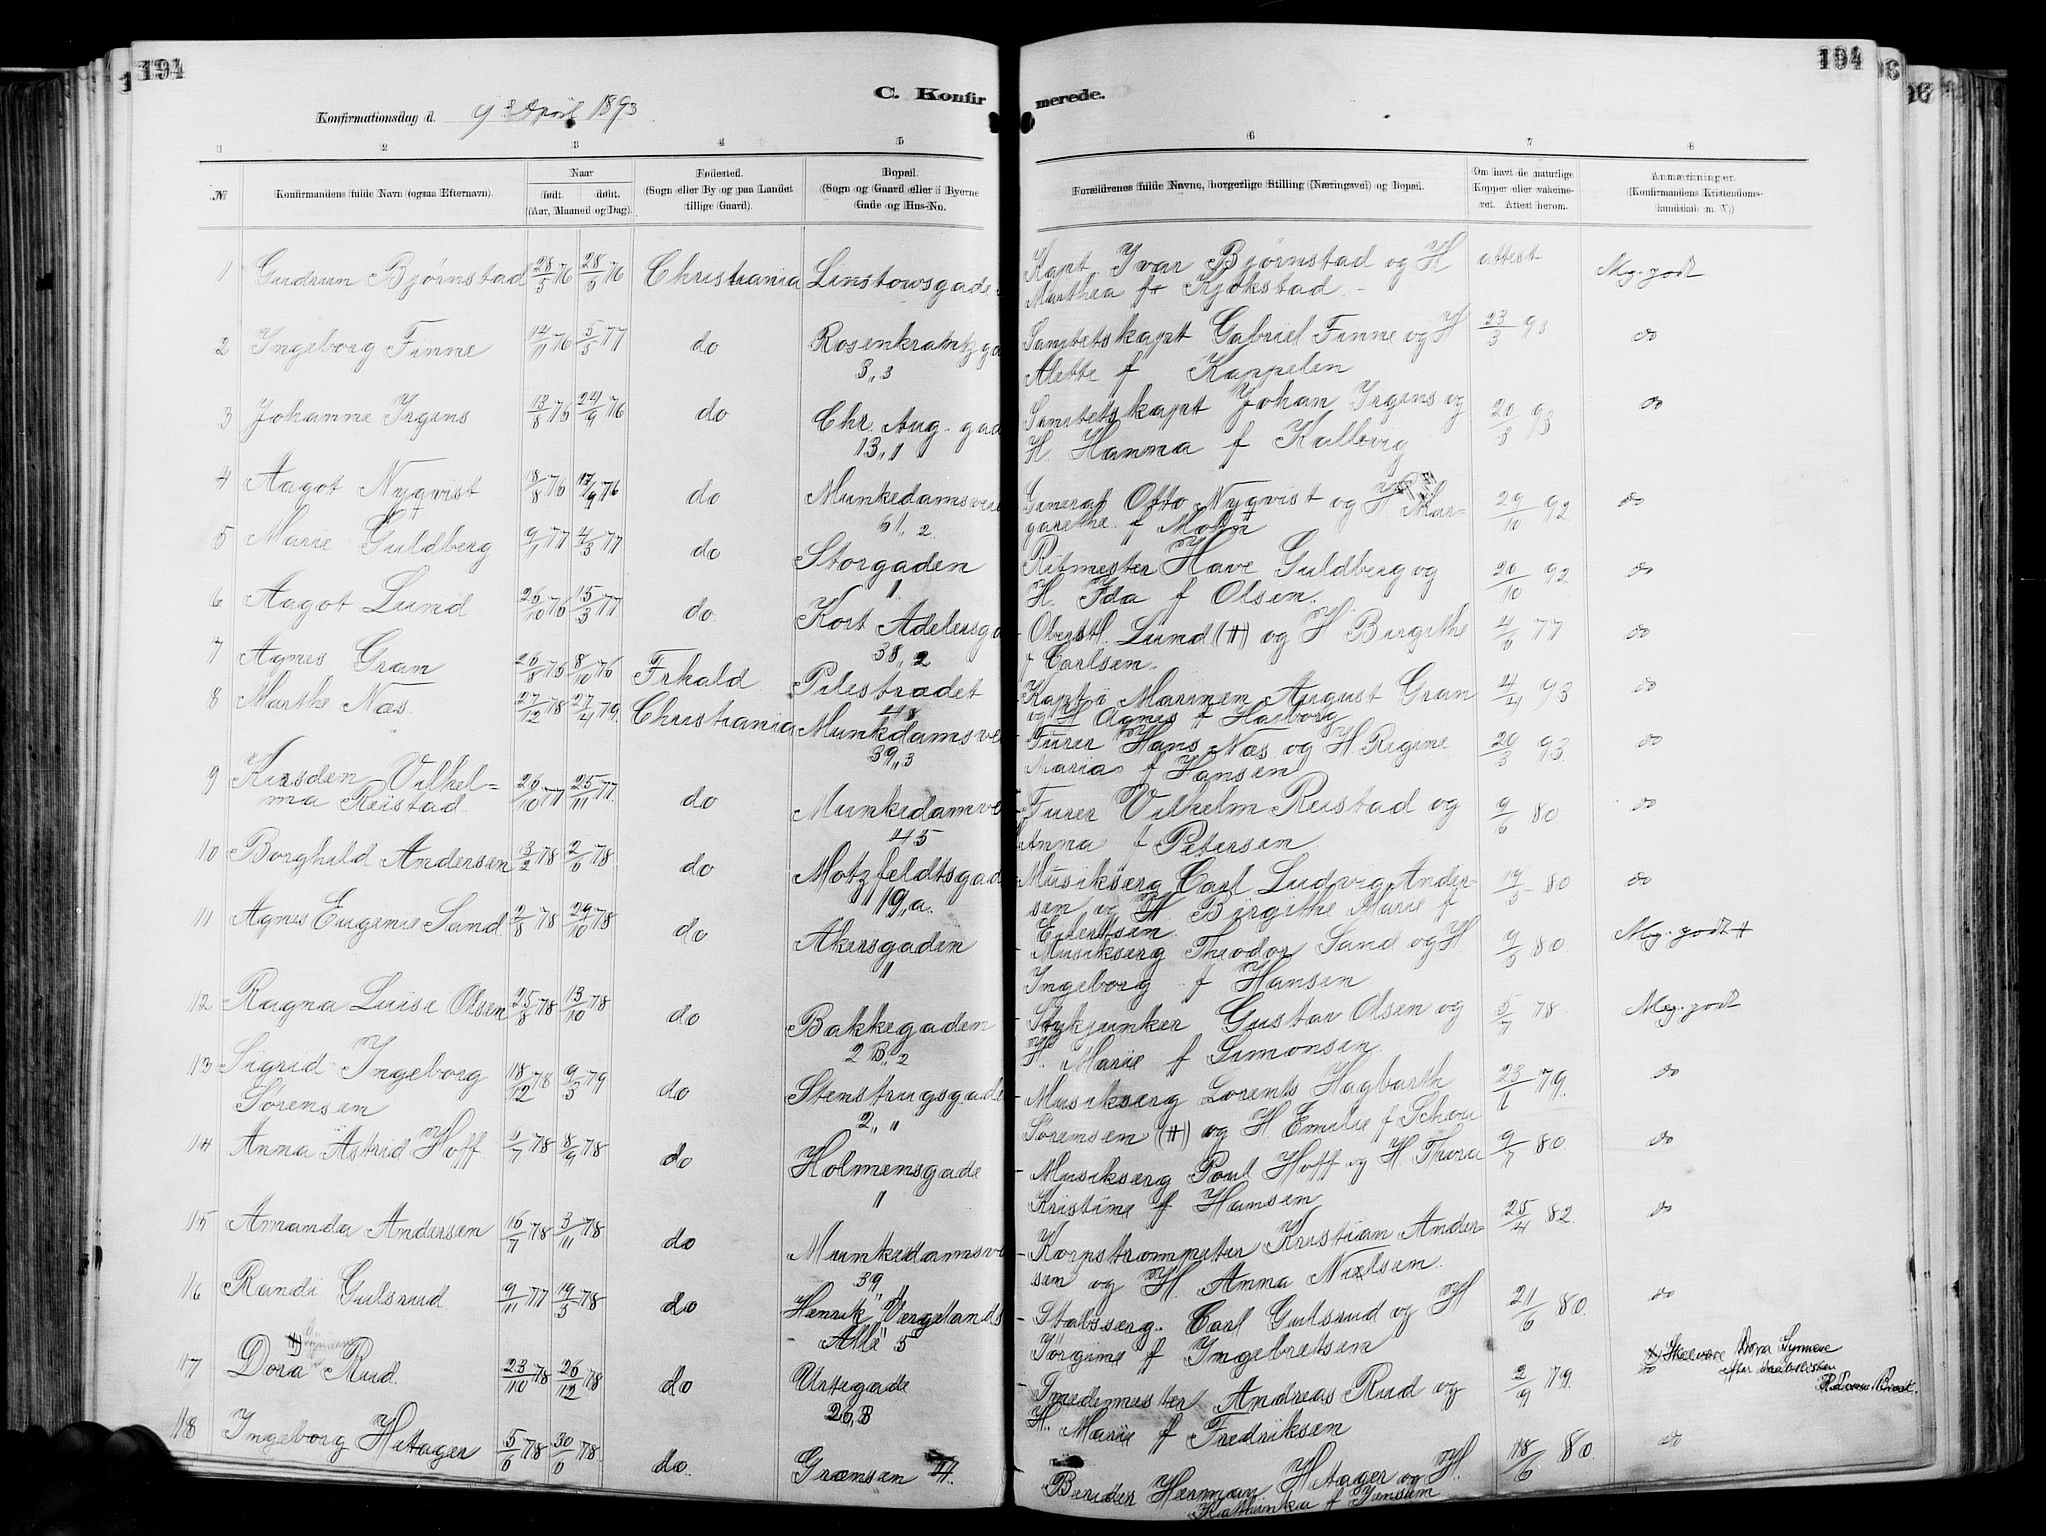 194
C. Konfir
Konfirmationsdag d. 9de April 1893
1 2 3 4 5
№ Konfirmandens fulde Navn (ogsaa Efternavn).
Naar
født. døbt.
(Aar, Maaned og Dag).
Fødested.
(Sogn eller By og paa Landet
tillige Gaard).
Bopæl.
(Sogn og Gaard eller i Byerne
Gade og Hus-No.
1 Gudrun Bjørnstad 28/5 76 28/6 76 Christiania Linstowsgade
2 Ingeborg Finne 14/11 76 5/3 77 do Rosenkrantzga
3,, 3
3 Johanne Irgens 13/8 76 24/9 76 do Chr. Aug. gad
13,, 1
4 Aagot Nyqvist 18/8 76 17/9 76 do Munkedamsvei
61,, 2.
5 Marie Guldberg 9/1 77 4/3 77 do Storgaden
1.
6 Aagot Lund 26/10 76 15/3 77 do. Kort Adelersga
38,, 2
7 Agnes Gran 26/8 76 8/10 76 Frhald Pilestrædet
48
8 Marthe Næs. 27/12 78 27/4 79. Christiania Munkdamsve
39,, 3
9 Kirsden Vilhel=
ma Reistad. 26/10 77 25/11 77. do Munkedamve
45
10 Borghild Andersen 13/2 78 2/6 78. do Motzfeldtsgad
19,, a.
11 Agnes Eugenie Sand 2/8 78 29/10 78 do Akersgaden
"
12 Ragna Luise Olsen 25/8 78 13/10 78 do Bakkegaden
2 B,, 2
13 Sigrid Ingeborg
Sørensen 18/12 78 9/3 79 do Stenstrupsgade
2,, "
14 Anna Astrid Hoff 5/7 78 8/9 78 do Holmensgade
"
15 Amanda Andersen 16/7 78 3/11 78 do Munkedamsve
39,,
16 Randi Gulsrud. 9/11 77 19/5 78 do Henrik Vergelands
Alle 5
17 Dora Rud. 23/10 78 26/12 78 do Urtegade
26,, 3
18 Ingeborg Hetager 5/6 78 30/6 78. do. Grænsen 4.
194
merede.
6 7 8
Forældrenes fulde Navne, borgerlige Stilling (Næringsvei) og Bopæl.
Om havt de naturlige
Kopper eller vakcine-
ret. Attest herom.
Anmærkninger.
(Konfirmandens Kristendoms-
kundskab m. V.)
Kapt. Ivar Bjørnstad og H attest Mg. godt
Marthea f Kjøkstad.
Sanitetskapt Gabriel Finne og H 23/3 93 do
Alette f Kappelen
Sanitetskapt Johan Irgens og 20/3 93 do
H. Hanna f Kallevig
General Otto Nyqvist og H. Mar= 29/10 92 do
garethe f
Ritmester Have Guldberg og 20/10 92 do
H. Ida f Olsen.
Oberstl. Lund (+) og H Birgithe 4/6 77 do
f Carlsen.
Kapt i Marinen August Gran 4/4 93 do
og H Agnes f
Furer Hans Næs og H. Regine 20/3 93. do
Maria f Hansen
Furer Vilhelm Reistad og 9/6 80 do
Anna f Petersen
Musikserg Carl Ludvig Ander- 19/5 80 do
sen og H Birgithe Marie f
Eilertsen.
Musikserg Theodor Sand og H 9/6 80 Mg. godt +
Ingeborg f Hansen
Stykjunker Gustav Olsen og 5/7 78 Meg. godt
H. Marie f Simonsen.
Musikserg Lorents Hagbarth 23/1 79. do
Sørensen (+) og H. Emilie f Schou
Musikserg Poul Hoff og H. Thora 9/7 80. do
Kristine f Hansen
Korpstrompeter Kristian Ander= 25/4 82. do
sen og H. Anna Nielsen.
Stabsserg. Carl Gulsrud og H 21/6 80. do
Jørgine f Ingebretsen
Smedemester Andreas Rud og 2/9 79. do
+) Skal være Dora Synnøve
efter daabslisten
H. Marie f Fredriksen
Berider Herman Hetager og H. 18/6 80. do
Kathinka f Jensen